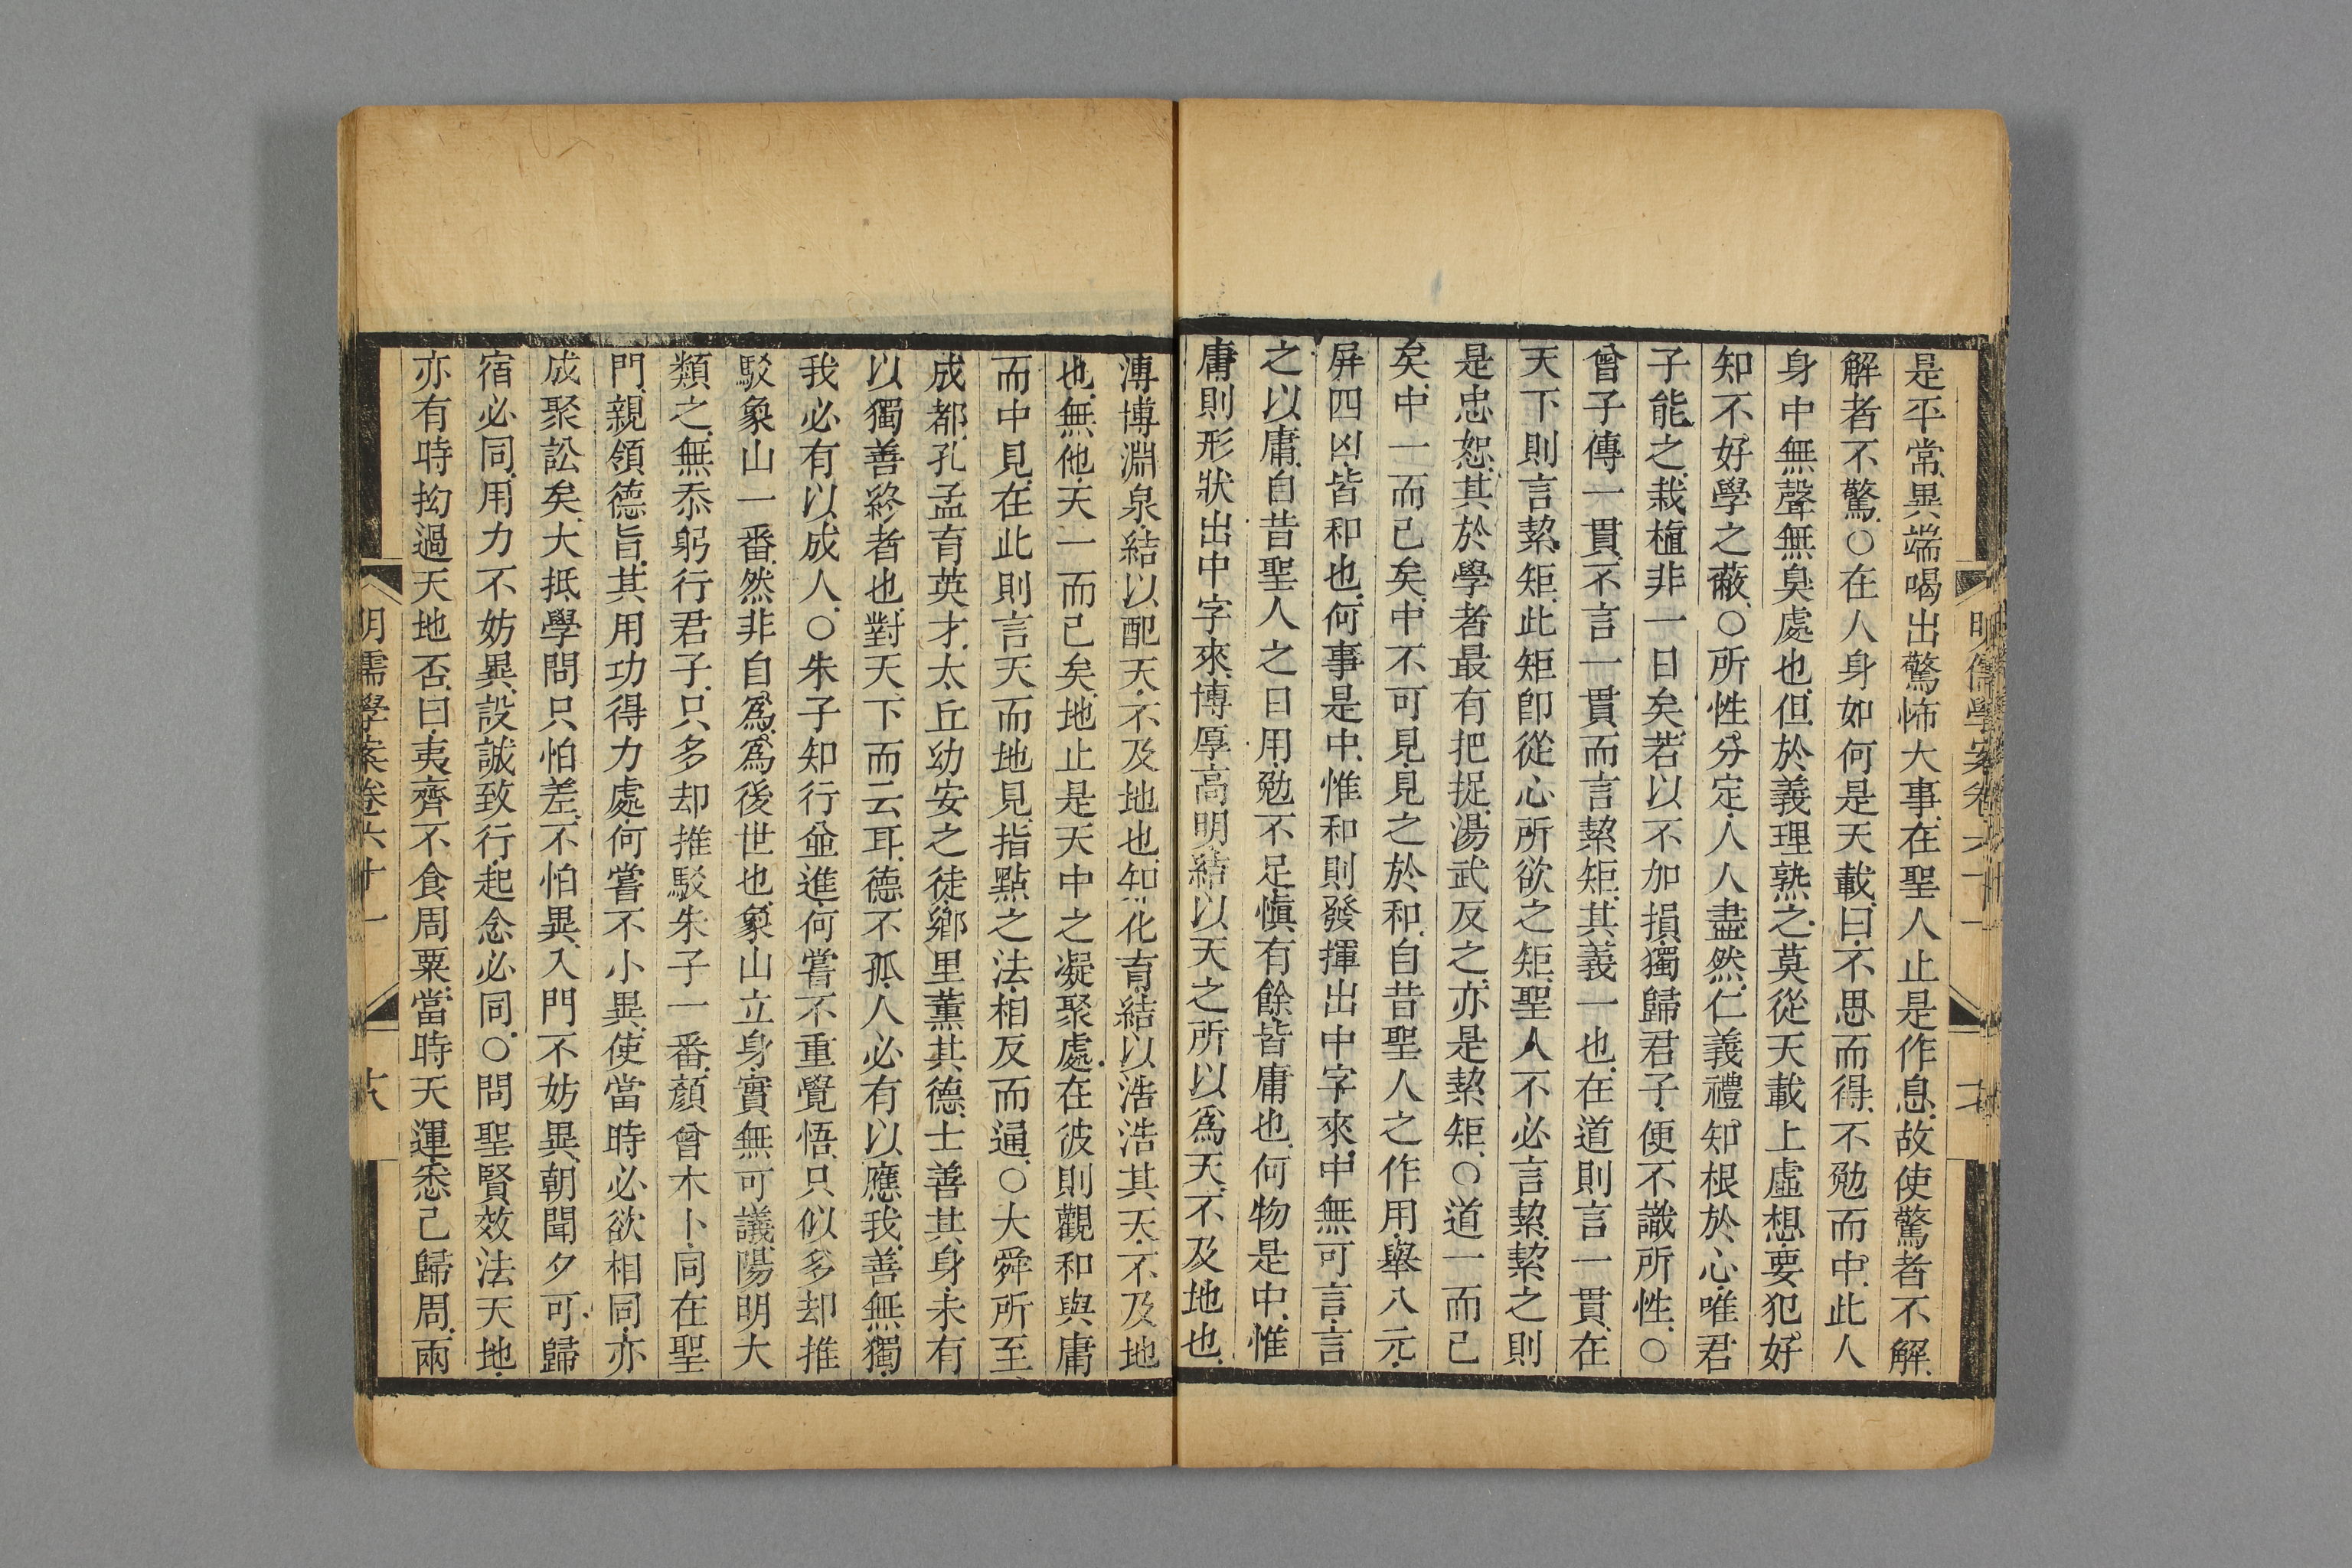 是平常異端喝出驚怖大事在聖人止是作息故使驚者不解
解者不驚○在人身如何是天載曰不思而得不勉而中此人
身中無聲無臭處也但於義理熟之莫從天載上虛想要犯好
知不好學之蔽○所性分定人人盡然仁義禮知根於心唯君
子能之栽植非一日矣若以不加損獨歸君子便不識所性○
曾子傳一貫不言一貫而言絜矩其義一也在道則言一貫在
天下則言絜矩此矩卽從心所欲之矩聖人不必言絜絜之則
是忠恕其於學者最有把捉湯武反之亦是絜矩○道一而已
矣中一而已矣中不可見見之於和自昔聖人之作用舉八元
屏四凶皆和也何事是中惟和則發揮出中字來中無可言言
之以庸自昔聖人之日用勉不足愼有餘皆庸也何物是中惟
庸則形狀出中字來博厚高明結以天之所以爲天不及地也
溥博淵泉結以配天不及地也知化育結以浩浩其天不及地
也無他天一而已矣地止是天中之凝聚處在彼則觀和與庸
而中見在此則言天而地見指點之法相反而通○大舜所至
成都孔孟育英才太丘幼安之徒鄉里薰其德士善其身未有
以獨善終者也對天下而云耳德不孤人必有以應我善無獨
我必有以成人○朱子知行並進何嘗不重覺悟只似多却推
駁象山一番然非自爲爲後世也象山立身實無可議陽明大
類之無忝躬行君子只多却推駁朱子一番顏曾木卜同在聖
門親領德旨其用功得力處何嘗不小異使當時必欲相同亦
成聚訟矣大抵學問只怕差不怕異入門不妨異朝聞夕可歸
宿必同用力不妨異設誠致行起念必同○問聖賢效法天地
亦有時拗過天地否曰夷齊不食周粟當時天運悉已歸周兩
明儒學案卷六十一